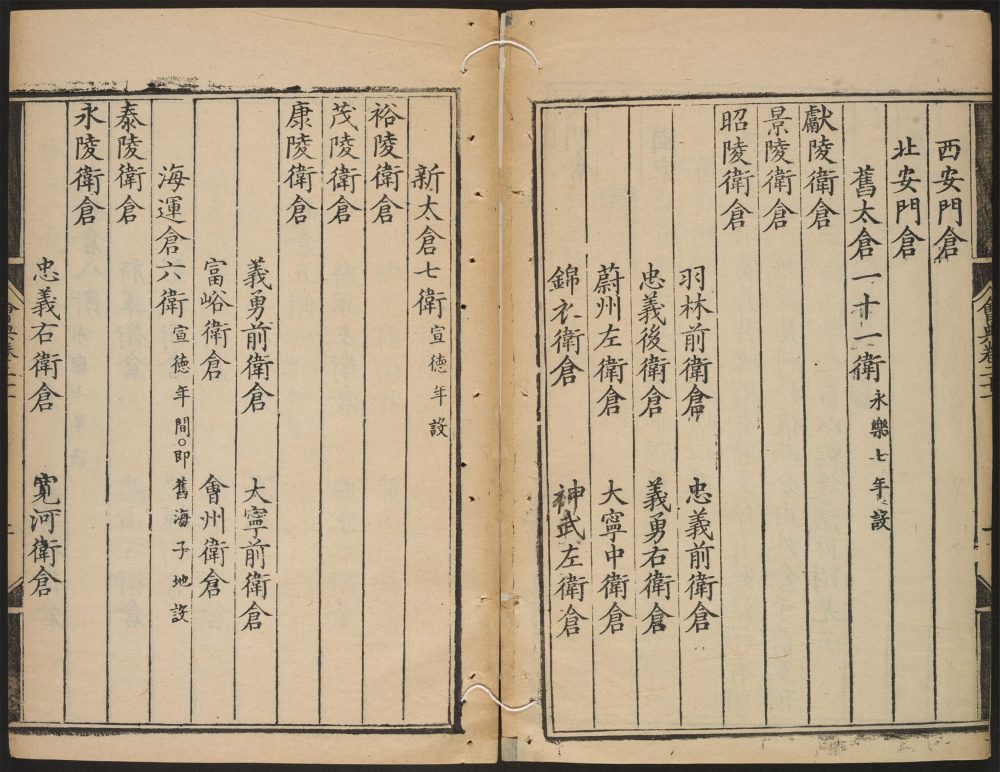 西安門倉
北安門倉
舊太倉一十一衛 永樂七年設
獻陵衛倉
景陵衛倉
昭陵衛倉
羽林前衛倉 忠義前衛倉
忠義後衛倉 義勇右衛倉
蔚州左衛倉 大寧中衛倉
錦衣衛倉 神武左衛倉
新太倉七衛 宣德年設
裕陵衛倉
茂陵衛倉
康陵衛倉
義勇前衛倉 大寧前衛倉
富峪衛倉 會州衛倉
海運倉六衛 宣德年間○即舊海子地設
泰陵衛倉
永陵衛倉
忠義右衛倉 寬河衛倉